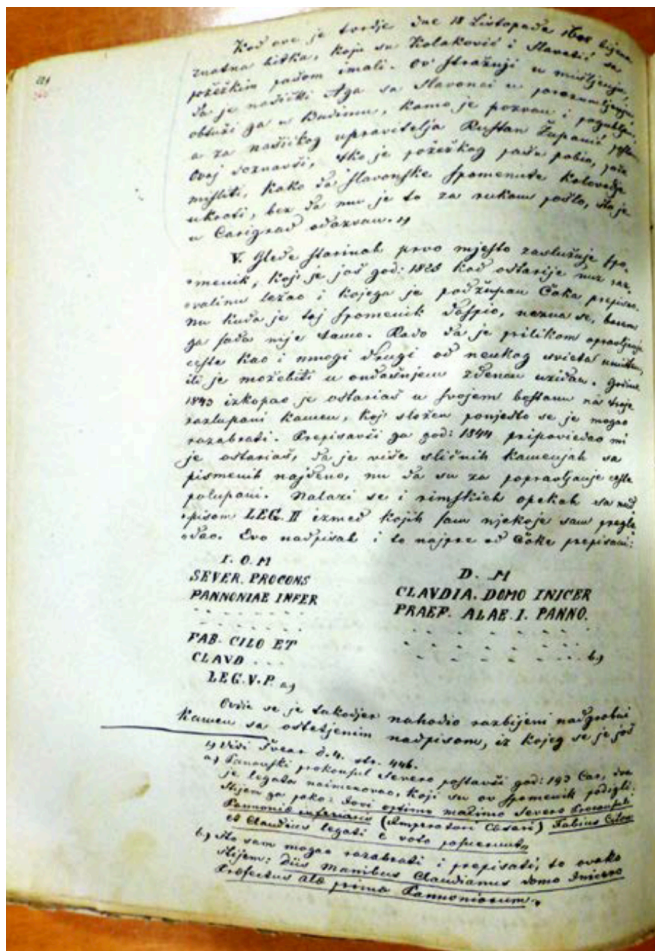 Kod ove je tvrdje dne 18 Listopada bijena
znatna bitka, koju su Kolaković i Slavetić sa
požežkim pašom imali. Ov stražuji u mišljenju,
da je našički Aga sa Slavonci u porazumljenju,
obtuži ga u Budimu, kamo je pozvan i pogubljen
a za našičkog upravitelja Rustan Županić
Ovaj soznavši, tko je požežkog pašu pobio, poče
misliti, kako da slavonske spomenute kolovodje
ukroti, bez da mu je to za rukom pošlo, što je
u Carigrad odazvan. 1)
V. Glede starinah prvo mjesto zaslužuje spo-
menik, koji je još god: 1825 kod oštarije uz raz-
valinu ležao i kojega je podžupan Čaka prepisao.
Nu kuda je taj spomenik dospio, nezna se, barem
ga sada nije tamo. Rado da je prilikom opravljanja
ceste kao i mnogi drugi od neukog svieta uništen,
ili je možebiti u ondašnjem zdencu uzidan. Godine
1843 izkopao je oštariaš u svojem boštanu na troje
razlupani kamen, koj složen ponješto se je mogao
razabrati. Prepisavši ga god: 1844 pripoviedao mi
je oštariaš, da je više sličnih kamenjah sa
pismenih najdeno, nu da su za popravljanje ceste
potupani. Nalazi se i rimskih opekah sa nad-
pisom LEG. II izmed kojih sam njekoje sam pregle-
dao. Evo nadpisah i to najpre od Čake prepisani:
I. O. M
SEVER. PROCONS
PANNONIAE INFER
- - - - - - -
- - - - - - -
FAB. CILO ET
CLAVD . . .
LEG. V. P. a)
D. M
CLAVDIA. DOMO INICER
PRAEF. ALAE. I. PANNO.
- - - - - - -
- - - - - - - b)
Ovdie se je takodjer nahodio razbijeni nadgrobni
kamen sa oštetjenim nadpisom, iz kojeg se je još
1) Vidi Švear d. 4. str. 446.
a) Panonski prokonsul Severo postavši god: 193 Car, dva
je legata naimenovao, koji su ov spomenik podigli.
Štijem ga pako: Iovi optimo maximo Severo Proconsuli
Pannoniæ inferioris (Imperatori Cæsari) Fabius Cilo
et Claudius legati e voto posuerunt.
b) Što sam mogao razabrati i prepisati, to ovako
štijem: Diis Manibus Claudianus domo Inicero
Præfectus alæ primæ Pannoniorum.